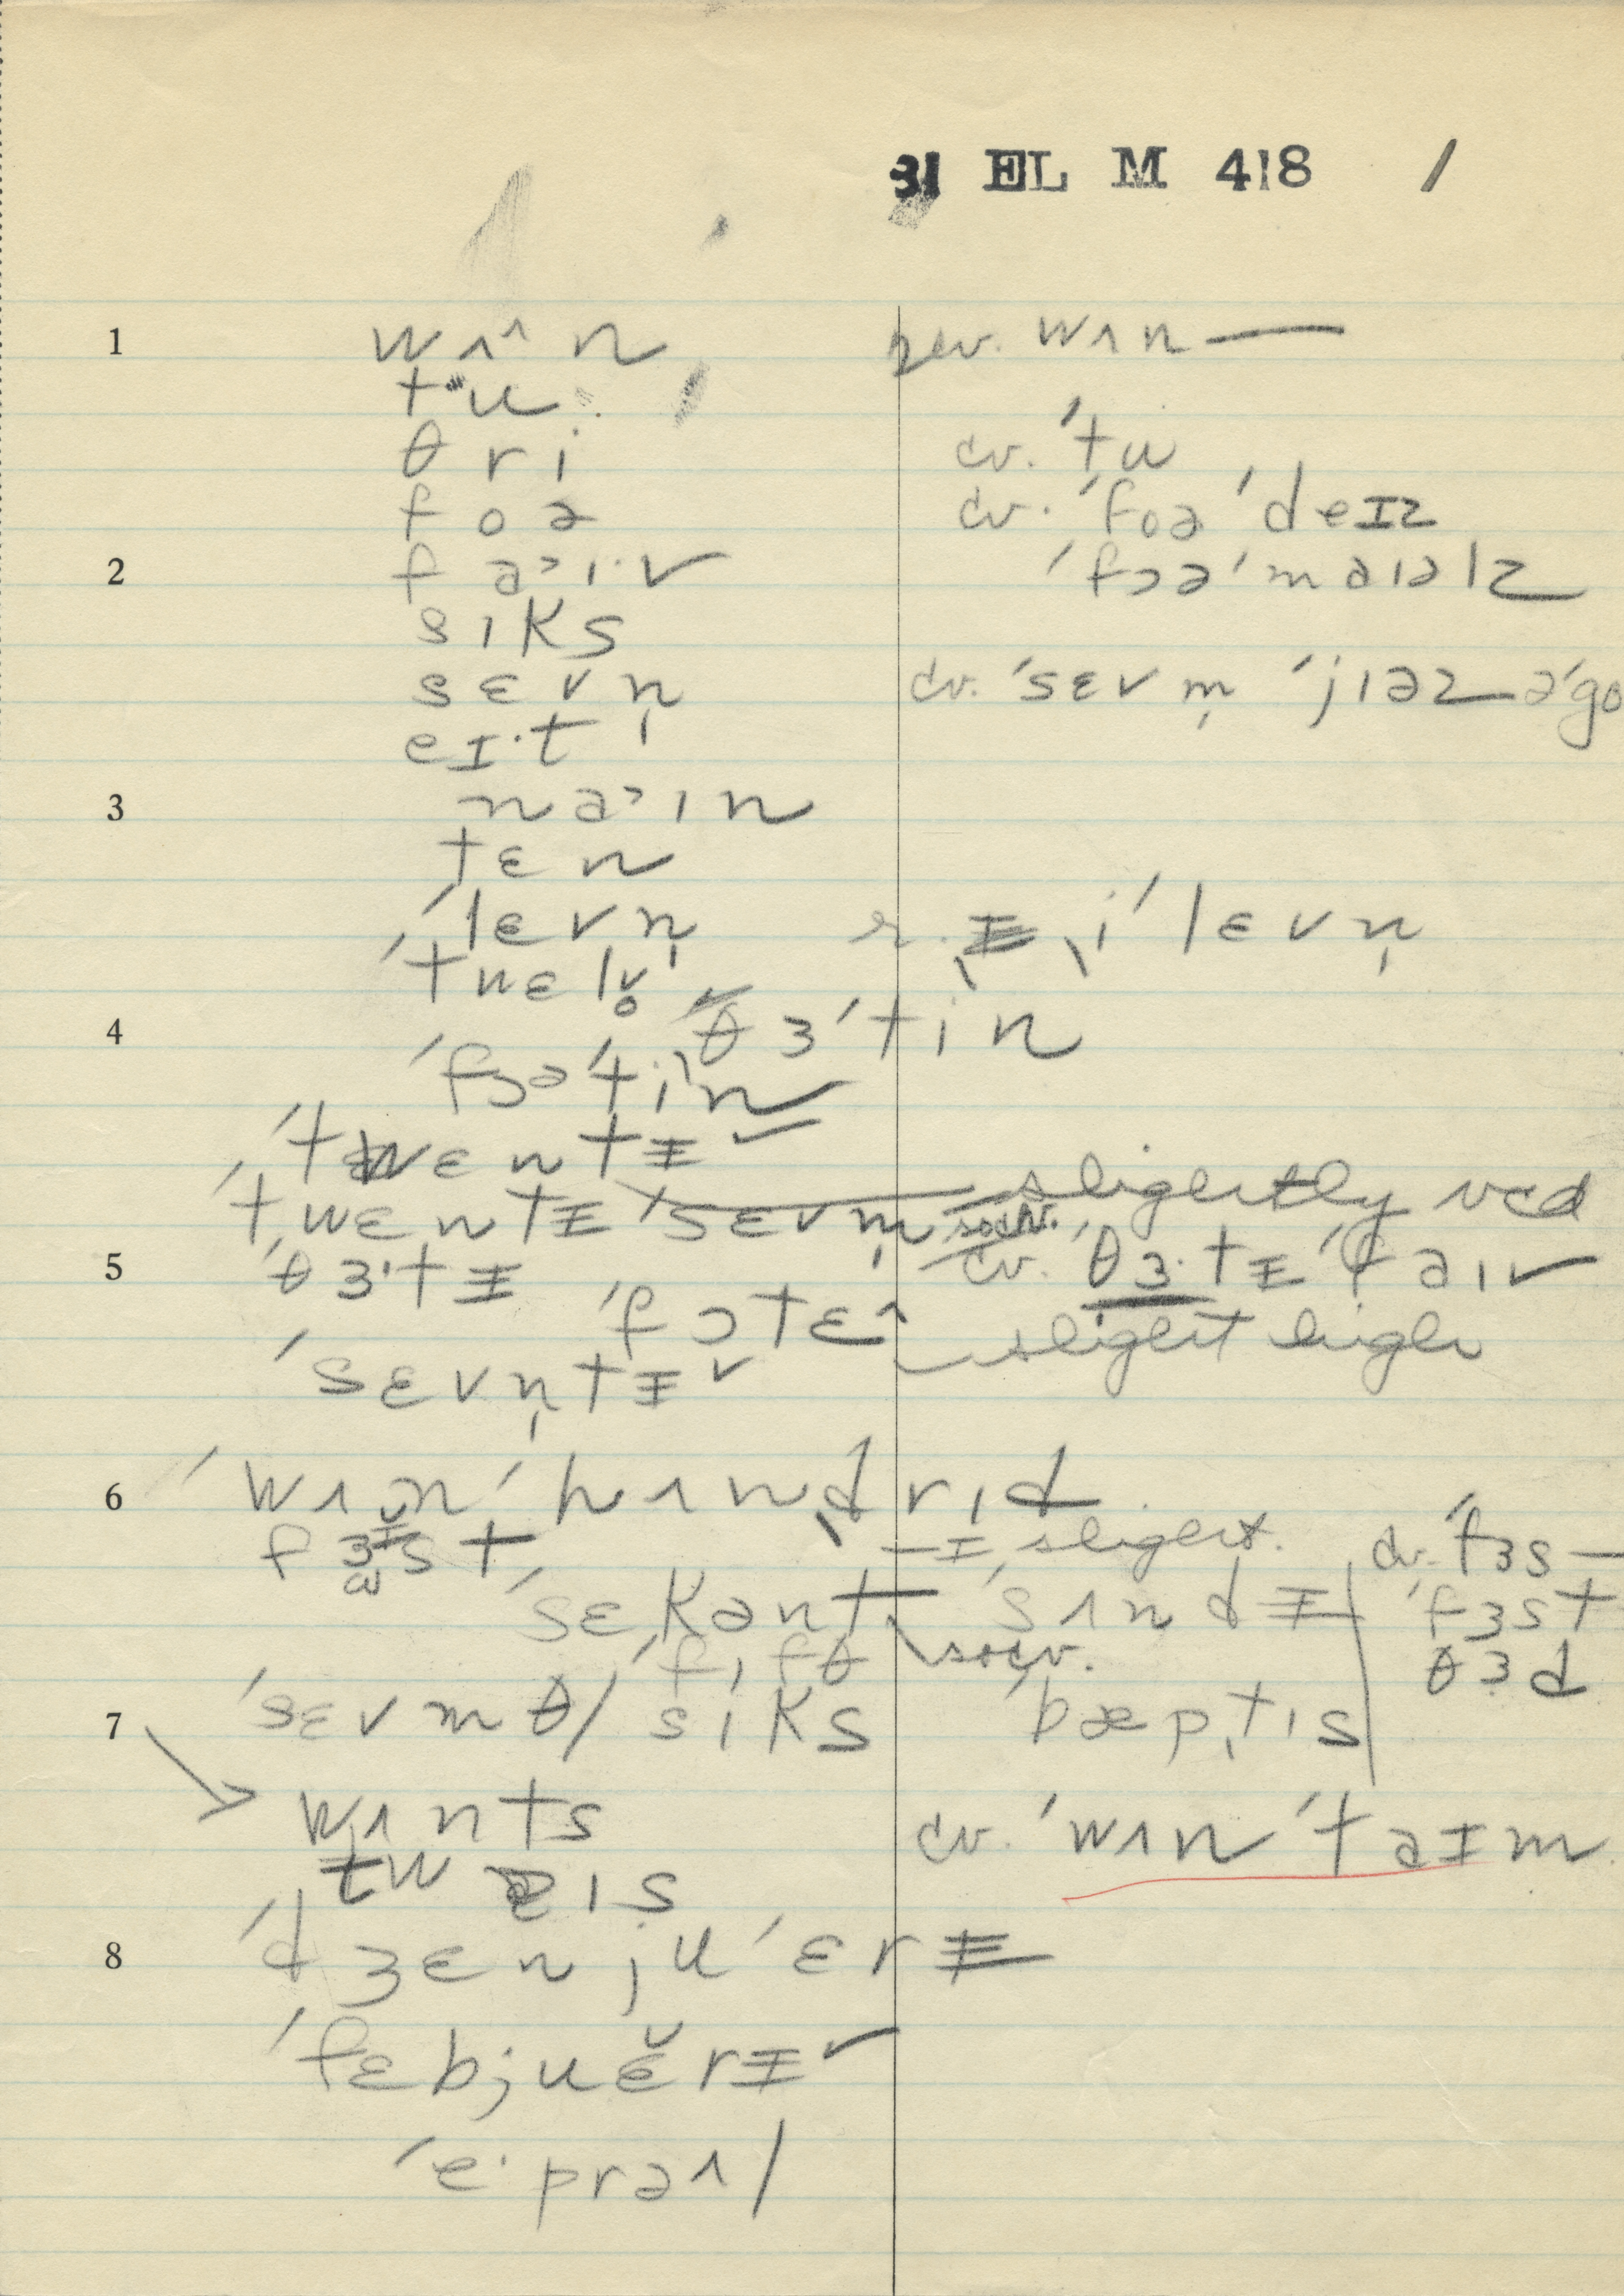 31 EL M 418 /
1 wʌ^n rev. wʌn —
tˑu
θri cv. ˈtu
foə cv. ˈfoə ˈdeɪz
2 fa˃ɪ·v ˈfɔə ˈmaɪəlz
sɪks
sɛvn̩ cv. ˈsɛvm̩ ˈjɪəz əˈgo
eɪ·t
3 na˃ɪn
tɛn
ˈlɛvn̩ r. iˈlɛvn̩
ˈtwɛlv̥
4 ˈθɜˈtin
ˈfɔəˈtin
ˈtwɛntɪ
ˈtwɛntɪ ˈsɛvm̩ slightly vcd
5 ˈθɜ·tɪ cv. ˈθɜ·tɪ ˈfaɪv
ˈfɔtɛ^ slight high
ˈsɛvn̩tɪ˅
6 ˈwʌn ˈhʌndrɪd
fɜst — ɪ slight. cv. ˈfɜs —
ˈsɛkənt ˈsʌndɪ ˈfɜst
ˈfɪfθ θɜd
7 ˈsɛvmθ / sɪks ˈbæptɪs
wʌnts cv. ˈwʌn ˈtaɪm
twaɪs
8 ˈdʒɛnjuˈɛrɪ
ˈfɛbjuĕrɪ˅
ˈe·prəʌl